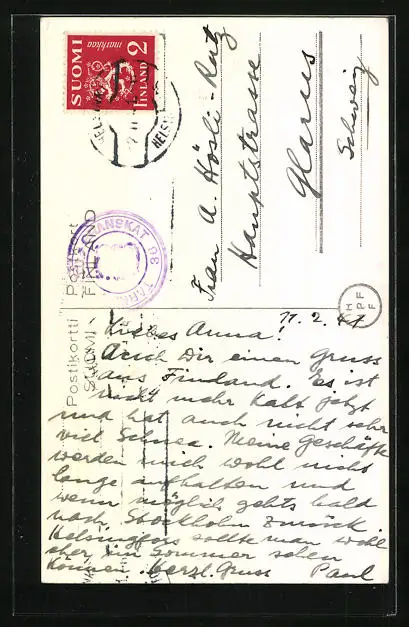 SUOMI
markkaa
2
FINLAND
HELSIN
Postikortti
SUOMI
FINLAND
Frau A. Hösli-Ratz
Hauptstrasse
Glarus
Schweiz
H
PF
F
11. 2. 47
Liebes Anna!
Auch Dir einen Gruss
aus Finnland. Es ist
nicht mehr kalt jetzt
und hat auch nicht sehr
viel Schnee. Meine Geschäfte
werden mich wohl nicht
lange aufhalten und
wenn möglich gehts bald
nach Stockholm zurück.
Helsingfors sollte man wohl
eher im Sommer sehen
können. Herzl. Gruss Paul